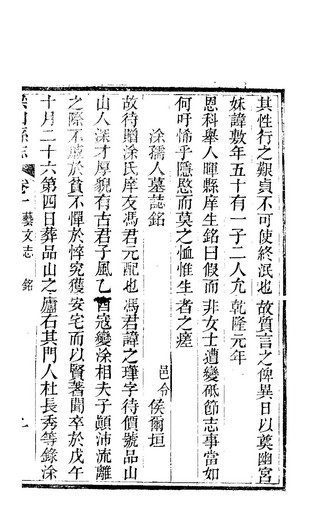 其性行之艱貞不可使終泯也故質言之俾異日以奠幽宮
妹諱數年五十有一子二人允乾隆元年
恩科舉人暉縣庠生銘曰假而非女士遭變砥節志事當如
何吁悕乎隱慇而莫之恤惟生者之瘥
涂孺人墓誌銘
邑令侯爾垣
故待贈涂氏庠友馮君元配也馮君諱之瑾字待價號品山
山人深才厚貌有古君子風乙酉寇變涂相夫子顛沛流離
之際不慮於貧不憚於悴究獲安宅而以賢著聞卒於戊午
十月二十六第四日葬品山之廬右其門人杜長秀等錄涂
縣志 卷十 藝文志 銘